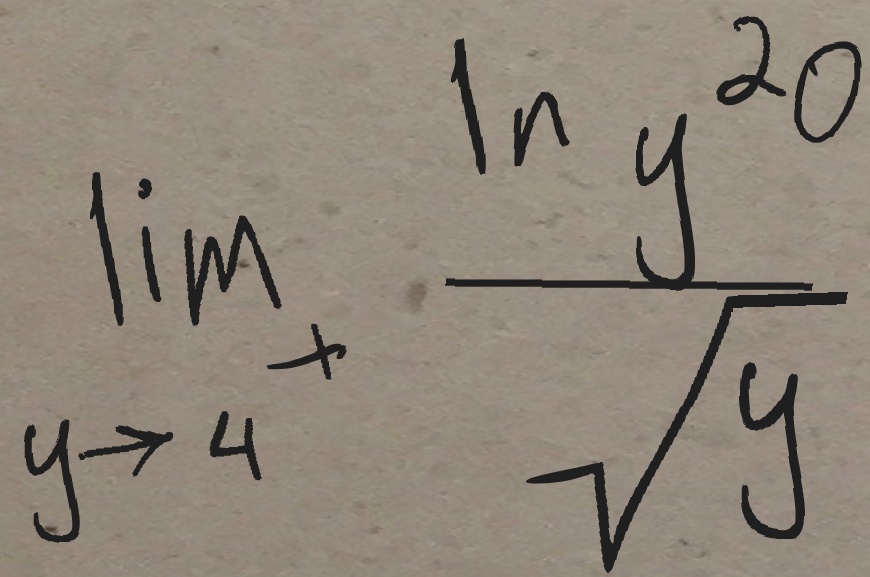 lim y→4⁺ ln y²⁰ / √y